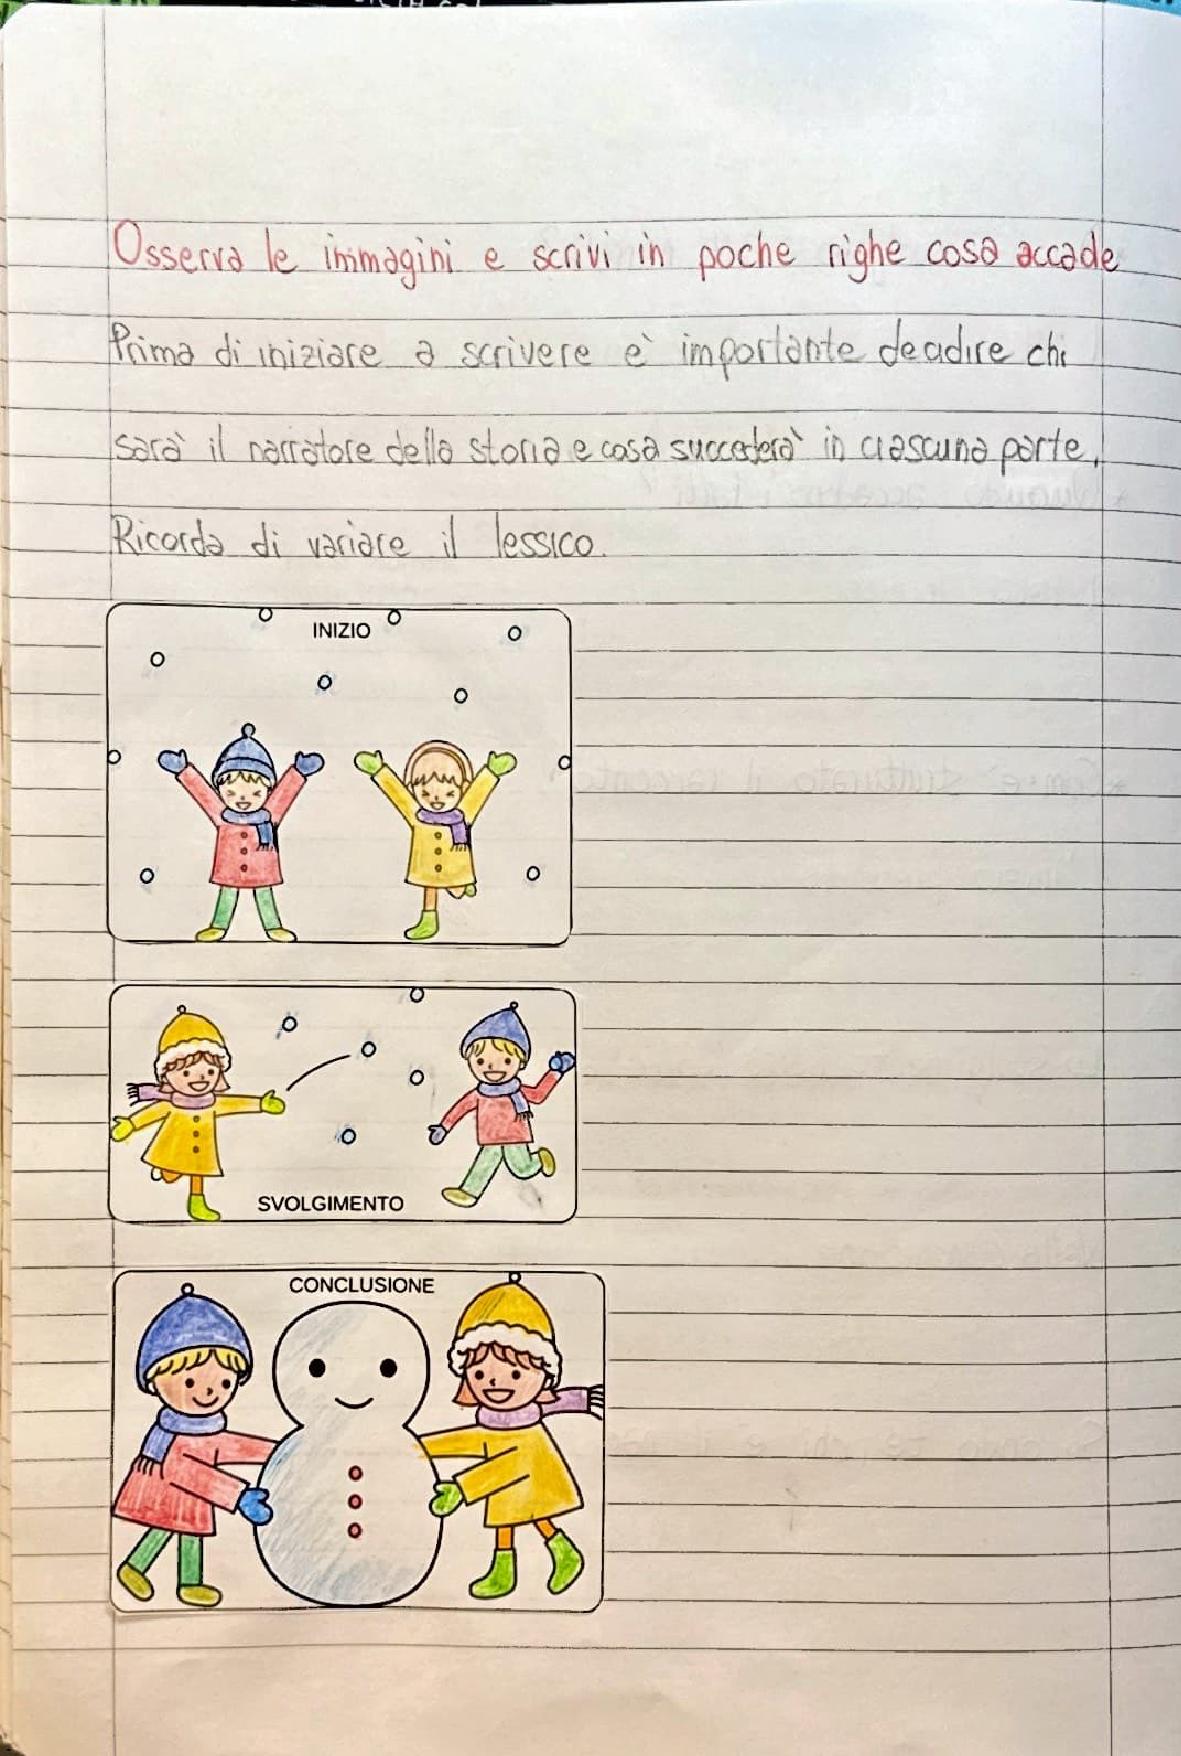 Osserva le immagini e scrivi in poche righe cosa accade
Prima di iniziare a scrivere è importante deadire chi
sarà il narratore della storia e cosa succederà in ciascuna parte.
Ricorda di variare il lessico.
INIZIO
SVOLGIMENTO
CONCLUSIONE